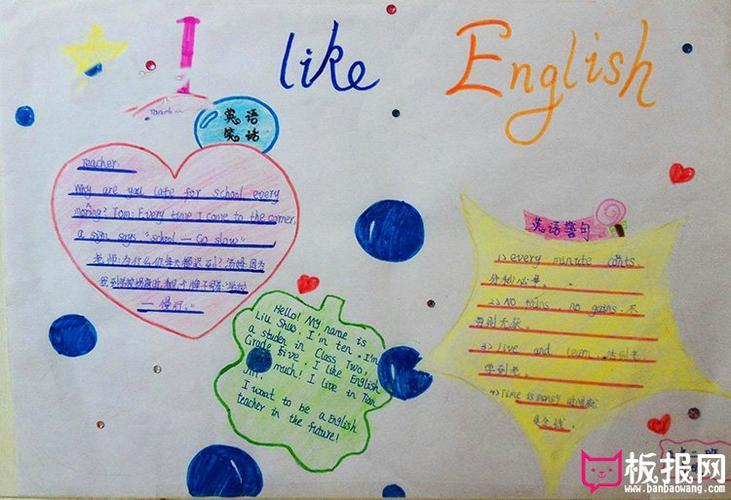 I like English
英语
笑话
Teacher:
Why are you late for school every
morning? Tom: Every time I come to the corner,
a sign says "school — Go slow"
老师:为什么你每天都迟到?汤姆:因为
— 慢行."
Hello! My name is
Liu Shuo. I'm ten. I'm
a studen in Class Two,
Grade Five. I like English
much! I live in Tian
Jin.
I want to be a English
teacher in the future!
英语警句
1) every minute counts
分秒必争.
2) NO pains no gains. 不
劳则无获.
3) live and learn. 活到老
学到老.
4) Time is money 时间就
是金钱.
板报网
www.banbaowang.com